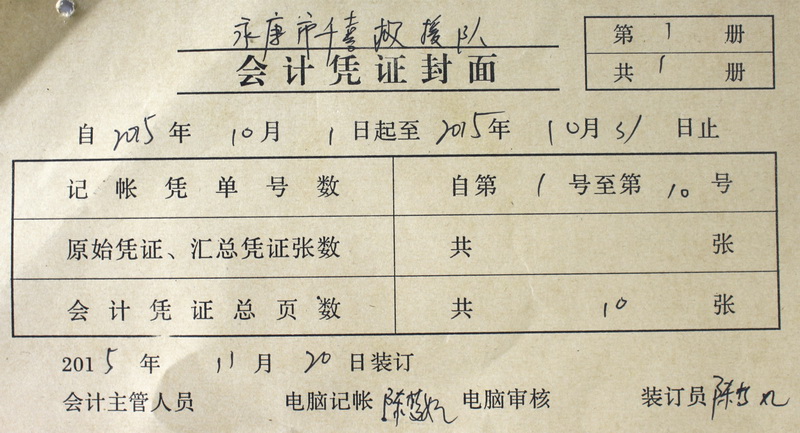 永康市千喜救援队
会计凭证封面
第 1 册
共 1 册
自 2015 年 10 月 1 日起至 2015 年 10 月 31 日止
记帐凭单号数 自第 1 号至第 10 号
原始凭证、汇总凭证张数 共 张
会计凭证总页数 共 10 张
2015 年 11 月 20 日装订
会计主管人员 电脑记帐 陈 电脑审核 装订员 陈